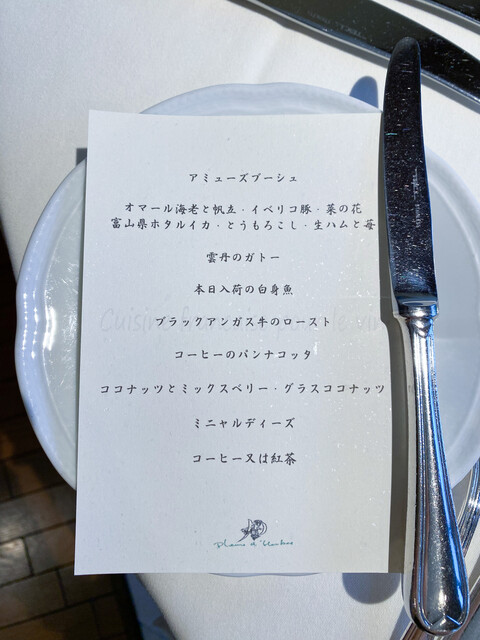 アミューズブーシュ
オマール海老と帆立・イベリコ豚・菜の花
富山県ホタルイカ・とうもろこし・生ハムと苺
雲丹のガトー
本日入荷の白身魚
ブラックアンガス牛のロースト
コーヒーのパンナコッタ
ココナッツとミックスベリー・グラスココナッツ
ミニャルディーズ
コーヒー又は紅茶